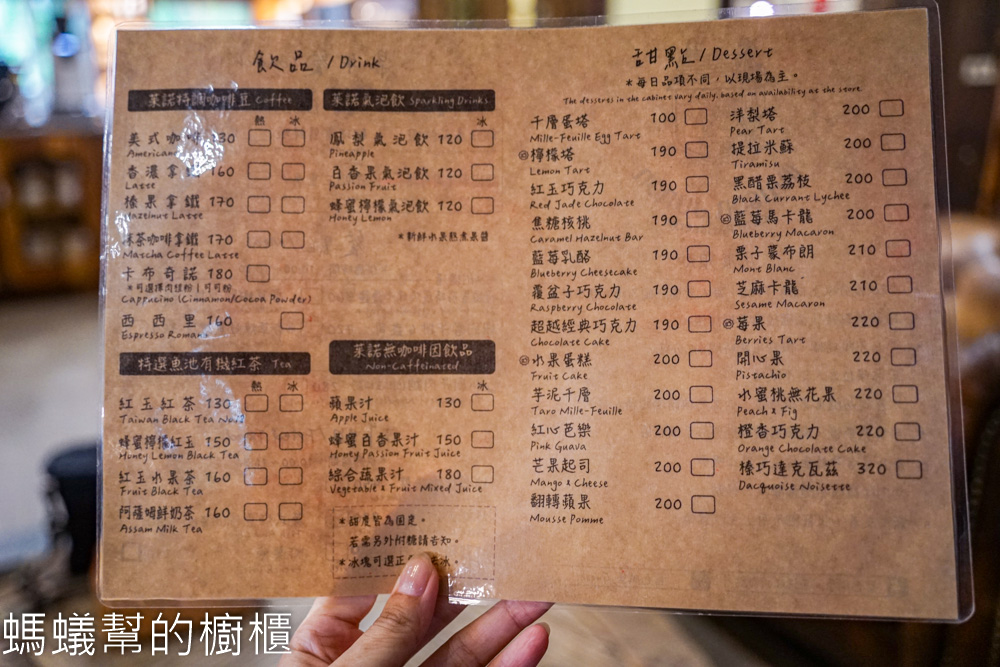 飲品 / Drink
萊諾特調咖啡豆 Coffee
熱 冰
美式咖啡 130
American
香濃拿鐵 160
Latte
榛果拿鐵 170
Hazelnut Latte
抹茶咖啡拿鐵 170
Matcha Coffee Latte
卡布奇諾 180
*可選擇肉桂粉|可可粉
Cappucino (Cinnamon/Cocoa Powder)
西西里 160
Espresso Romano
特選魚池有機紅茶 Tea
熱 冰
紅玉紅茶 130
Taiwan Black Tea No.18
蜂蜜檸檬紅玉 150
Honey Lemon Black Tea
紅玉水果茶 160
Fruit Black Tea
阿薩姆鮮奶茶 160
Assam Milk Tea
萊諾氣泡飲 Sparkling Drinks
冰
鳳梨氣泡飲 120
Pineapple
百香果氣泡飲 120
Passion Fruit
蜂蜜檸檬氣泡飲 120
Honey Lemon
*新鮮水果熬煮果醬
萊諾無咖啡因飲品
Non-Caffeinated
冰
蘋果汁 130
Apple Juice
蜂蜜百香果汁 150
Honey Passion Fruit Juice
綜合蔬果汁 180
Vegetable & Fruit Mixed Juice
*甜度皆為固定。
若需另外附糖請告知。
*冰塊可選正 冰。
甜點 / Dessert
*每日品項不同,以現場為主。
The desseres in the cabinet vary daily, based on availability at the store
千層蛋塔 100
Mille-Feuille Egg Tart
檸檬塔 190
Lemon Tart
紅玉巧克力 190
Red Jade Chocolate
焦糖核桃 190
Caramel Hazelnut Bar
藍莓乳酪 190
Blueberry Cheesecake
覆盆子巧克力 190
Raspberry Chocolate
超越經典巧克力 190
Chocolate Cake
水果蛋糕 200
Fruit Cake
芋泥千層 200
Taro Mille-Feuille
紅心芭樂 200
Pink Guava
芒果起司 200
Mango & Cheese
翻轉蘋果 200
Mousse Pomme
洋梨塔 200
Pear Tart
提拉米蘇 200
Tiramisu
黑醋栗荔枝 200
Black Currant Lychee
藍莓馬卡龍 200
Blueberry Macaron
栗子蒙布朗 210
Mont Blanc
芝麻卡龍 210
Sesame Macaron
莓果 220
Berries Tart
開心果 220
Pistachio
水蜜桃無花果 220
Peach & Fig
橙香巧克力 220
Orange Chocolate Cake
榛巧達克瓦茲 320
Dacquoise Noisette
螞蟻幫的櫥櫃